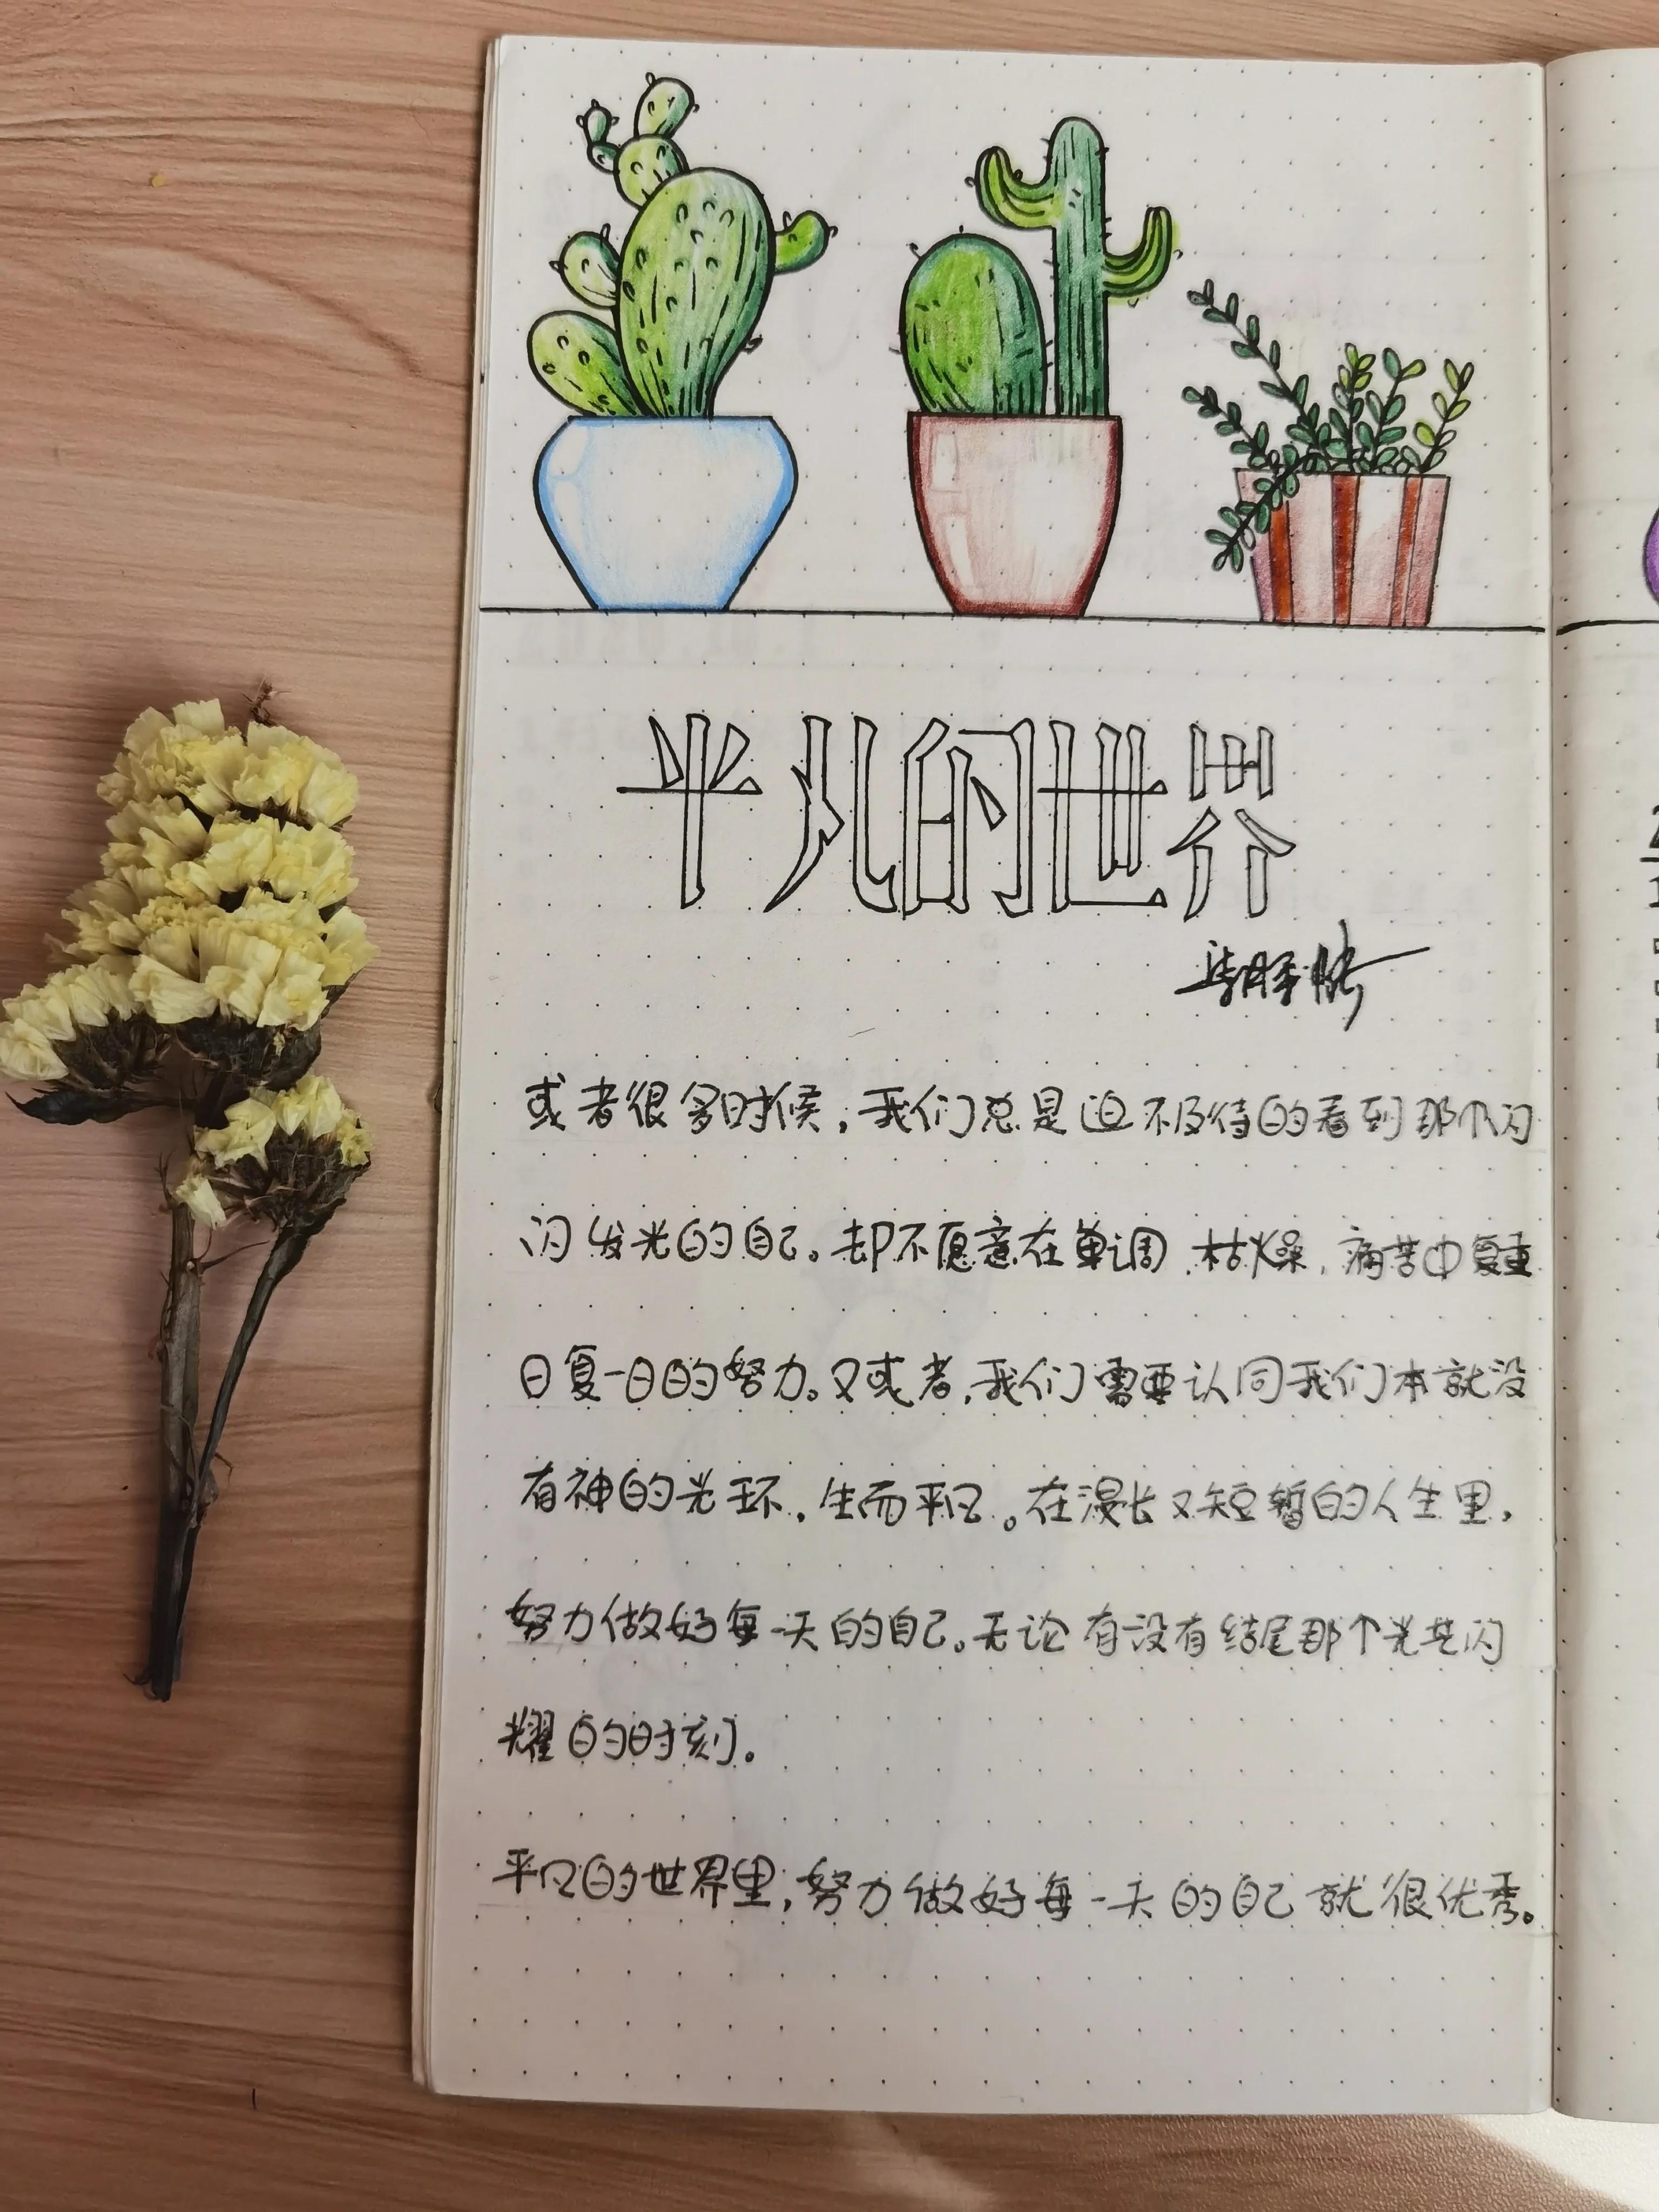 平凡的世界
或者很多时候，我们总是迫不及待的看到那个闪
闪发光的自己。却不愿意在单调、枯燥、痛苦中复重
日复一日的努力。又或者，我们需要认同我们本就没
有神的光环，生而平凡。在漫长又短暂的人生里，
努力做好每一天的自己。无论有没有结尾那个光芒闪
耀的时刻。
平凡的世界里，努力做好每一天的自己就很优秀。
2
1